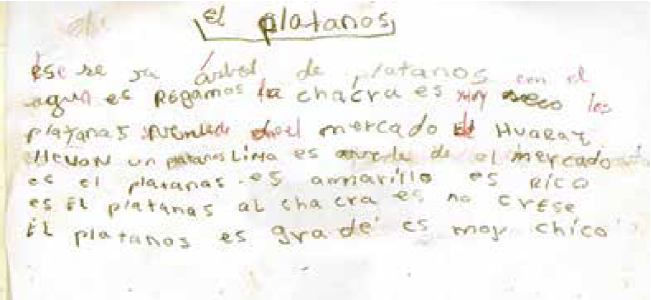 el platanos
ese se sa árbol de platanos con el
agua es Regamos la chacra es muy seco los
platanas en el mercado Huaraz
llevan un Lima es de el mercado
es el platanas es amarillo es Rico
es El platanas al chacra es no crese
El platanos es grade es moy chico